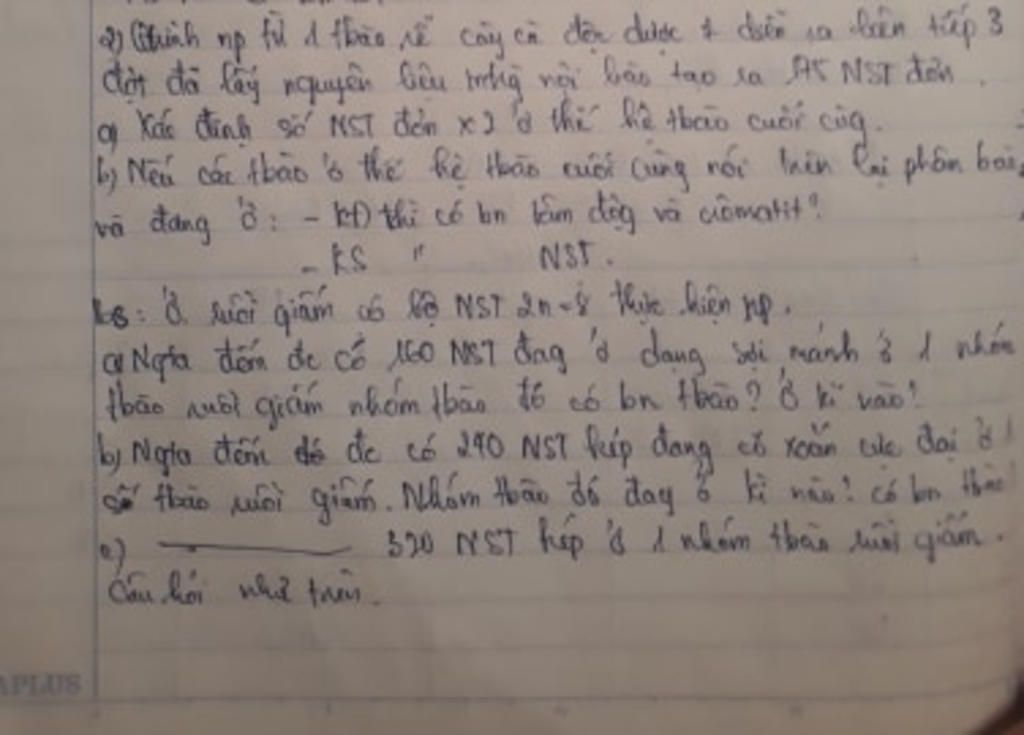 2) Qtrình np từ 1 tbào rễ cây cà độc dược ♀ diễn ra liên tiếp 3
đợt đã lấy nguyên liệu mtrg nội bào tạo ra 175 NST đơn.
a) Xác định số NST đơn x2 ở thế hệ tbào cuối cùg.
b) Nếu các tbào ở thế hệ tbào cuối cùng nói trên lại phân bào
và đang ở: - KĐ thì có bn tâm độg và crômatit?
- KS " NST.
b3: Ở ruồi giấm có bộ NST 2n=8 thực hiện np.
a) Ngta đếm đc có 160 NST đag ở dạng sợi mảnh ở 1 nhóm
tbào ruồi giấm nhóm tbào đó có bn tbào? Ở kì nào?
b) Ngta đếm đc có 240 NST kép đang co xoắn cực đại ở 1
số tbào ruồi giấm. Nhóm tbào đó đag ở kì nào? có bn tbào
c) 320 NST kép ở 1 nhóm tbào ruồi giấm.
Câu hỏi như trên.
APLUS